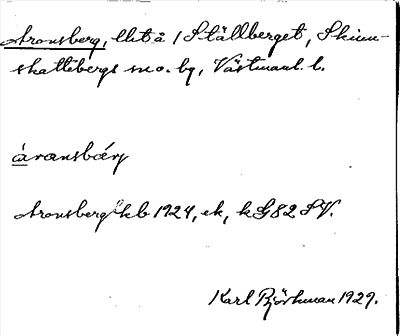 Aronsberg, llt å /Ställberget, Skinn-
skattebergs sn o. bg, Västmanl. l.
àransbárj
Aronsberg kb 1924, ek, k G82 SV.
Karl Björkman 1929.